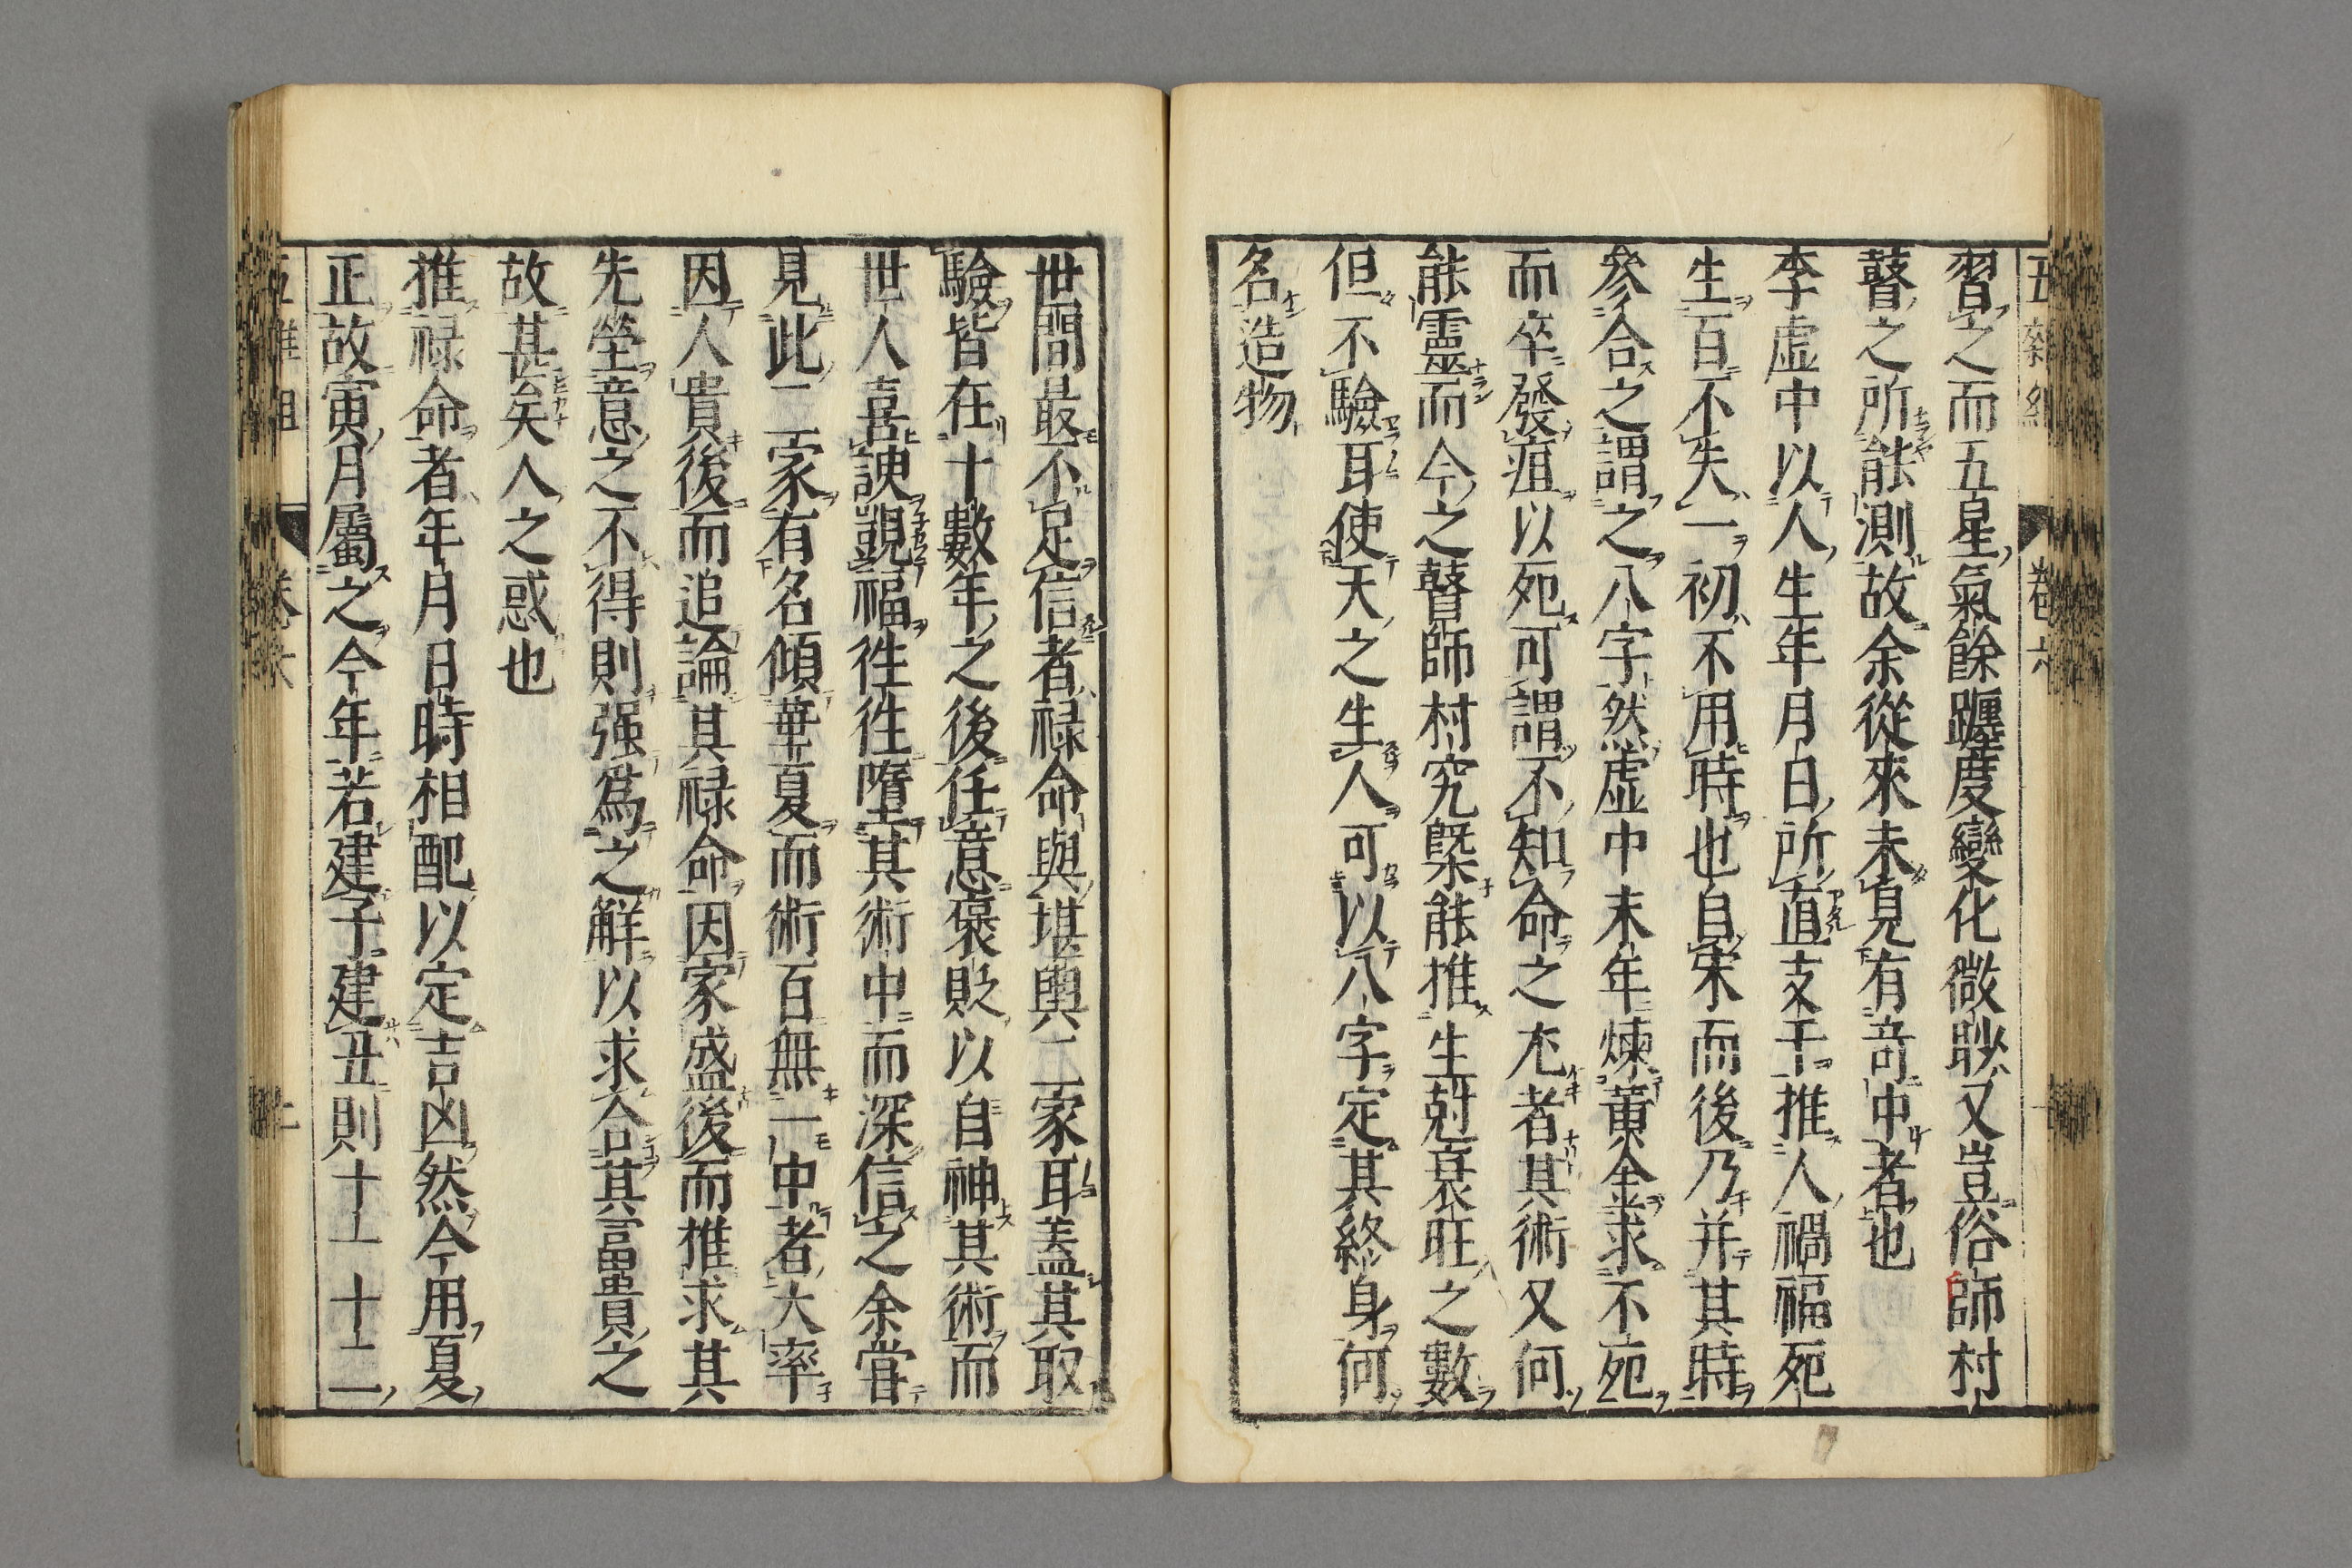 習之而五星氣餘躔度變化微眇又豈俗師村
瞽之所能測故余從來未見有奇中者也
李虛中以人生年月日所直支干推人禍福死
生百不失一初不用時也自宋而後乃并其時
參合之謂之八字然虛中末年煉黃金求不死
而卒發疽以死可謂不知命之尤者其術又何
能靈而今之瞽師村究槩能推生尅衰旺之數
但不驗耳使天之生人可以八字定其終身何
名造物
世間最不足信者禄命與堪輿二家耳盖其取
驗皆在十數年之後任意褒貶以自神其術而
世人喜諛覬福徃徃墮其術中而深信之余嘗
見此二家有名傾華夏而術百無一中者大率
因人貴後而追論其禄命因家盛後而推求其
先塋意之不得則强爲之解以求合其富貴之
故甚矣人之惑也
推禄命者年月日時相配以定吉凶然今用夏
正故寅月屬之今年若建子建丑則十一十二
卷六